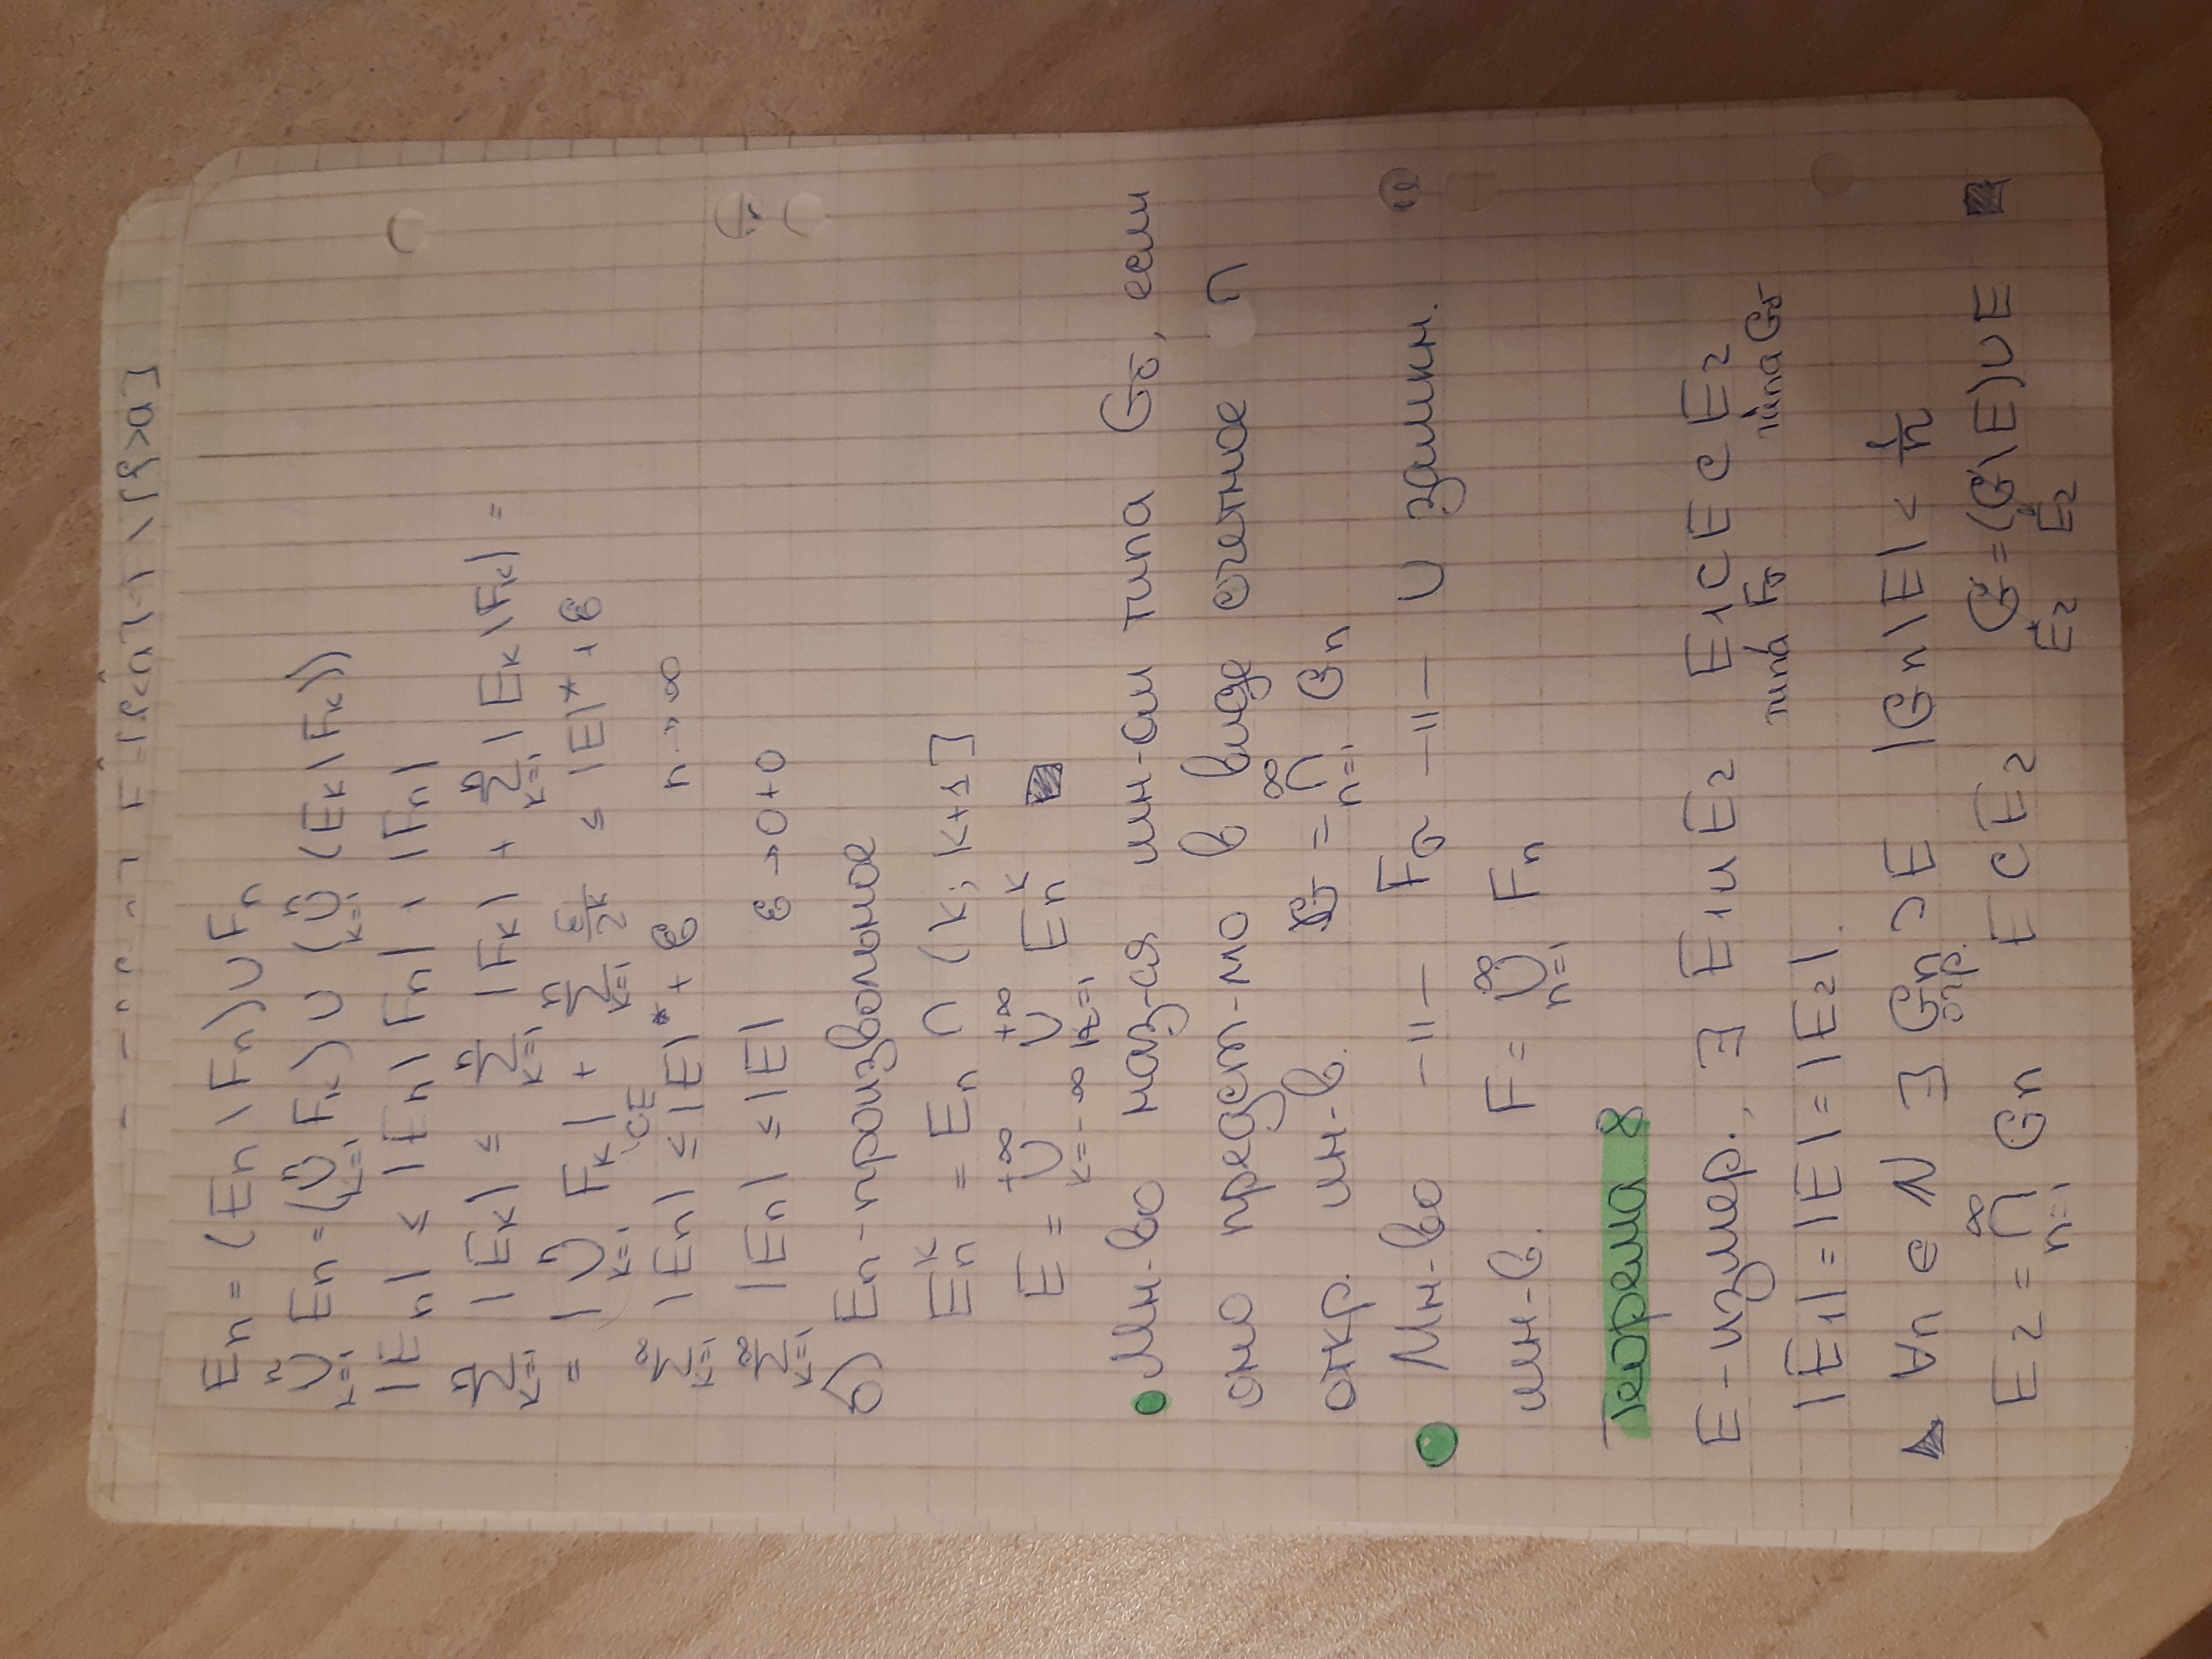 Eₙ = (Eₙ \ Fₙ) ∪ Fₙ
⋃ₖ₌₁ⁿ Eₙ = (⋃ₖ₌₁ⁿ Fₖ) ∪ (⋃ₖ₌₁ⁿ (Eₖ \ Fₖ))
|Eₙ| ≤ |Eₙ \ Fₙ| + |Fₙ|
∑ₖ₌₁ⁿ |Eₖ| ≤ ∑ₖ₌₁ⁿ |Fₖ| + ∑ₖ₌₁ⁿ |Eₖ \ Fₖ| =
= |⋃ₖ₌₁ⁿ Fₖ| + ∑ₖ₌₁ⁿ ε/2ᵏ ≤ |E|* + ε
⊂E
∑ₖ₌₁^∞ |Eₙ| ≤ |E|* + ε n → ∞
∑ₖ₌₁^∞ |Eₙ| ≤ |E| ε → 0+0
б) Eₙ - произвольное
Eₙᵏ = Eₙ ∩ (k; k+1]
E = ⋃ₖ₌₋∞^+∞ ⋃ₙ₌₁^+∞ Eₙᵏ
Мн-во наз-ся мн-ом типа Gδ, если
оно предст-мо в виде счетное ∩
откр. мн-в. G = ⋂ₙ₌₁^∞ Gₙ
Мн-во —||— Fσ —||— ∪ замкн.
мн-в. F = ⋃ₙ₌₁^∞ Fₙ
Теорема 8
E - измер., ∃ E₁ и E₂ E₁ ⊂ E ⊂ E₂
типа Fσ типа Gδ
|E₁| = |E| = |E₂|.
∀n ∈ N ∃ Gₙ ⊃ E |Gₙ \ E| < 1/n
откр.
E₂ = ⋂ₙ₌₁^∞ Gₙ E ⊂ E₂ G = (G \ E) ∪ E
E₂ E₂